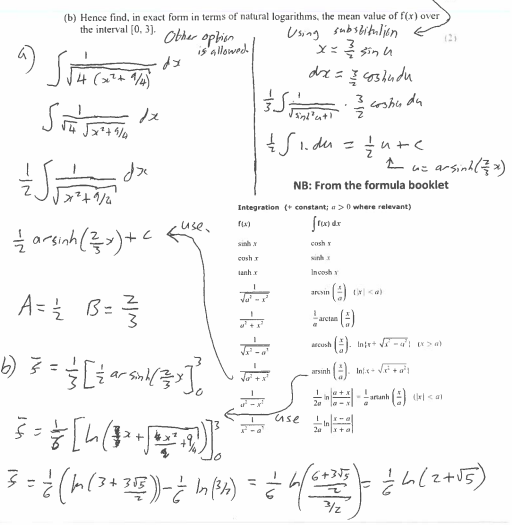 (b) Hence find, in exact form in terms of natural logarithms, the mean value of f(x) over
the interval [0, 3].
(2)
Other option is allowed.
a) ∫ 1/√(4(x²+9/4)) dx
∫ 1/(√4 √(x²+9/4)) dx
1/2 ∫ 1/√(x²+9/4) dx
1/2 arsinh(2/3 x) + c ← use.
A = 1/2 B = 2/3
Using substitution
x = 3/2 sinh u
dx = 3/2 cosh u du
1/3 ∫ 1/√(sinh²u+1) · 3/2 cosh u du
1/2 ∫ 1. du = 1/2 u + c
u = arsinh(2/3 x)
NB: From the formula booklet
Integration (+ constant; a > 0 where relevant)
f(x) ∫ f(x) dx
sinh x cosh x
cosh x sinh x
tanh x ln cosh x
1/√(a² − x²) arcsin(x/a) (|x| < a)
1/(a² + x²) 1/a arctan(x/a)
1/√(x² − a²) arcosh(x/a), ln{x + √(x² − a²)} (x > a)
1/√(a² + x²) arsinh(x/a), ln{x + √(x² + a²)}
1/(a² − x²) 1/2a ln|(a + x)/(a − x)| = 1/a artanh(x/a) (|x| < a)
1/(x² − a²) 1/2a ln|(x − a)/(x + a)|
use
b) f̄ = 1/3 [1/2 arsinh(2/3 x)]₀³
f̄ = 1/6 [ln(x + √(x² + 9/4))]₀³
f̄ = 1/6 (ln(3 + 3√5/2)) − 1/6 ln(3/2) = 1/6 ln(((6+3√5)/2)/(3/2)) = 1/6 ln(2+√5)